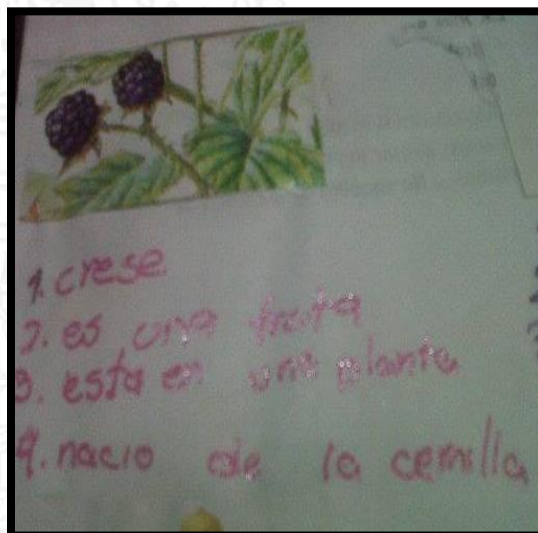 1. crese
2. es una fruta
3. esta en una planta
4. nacio de la cemilla